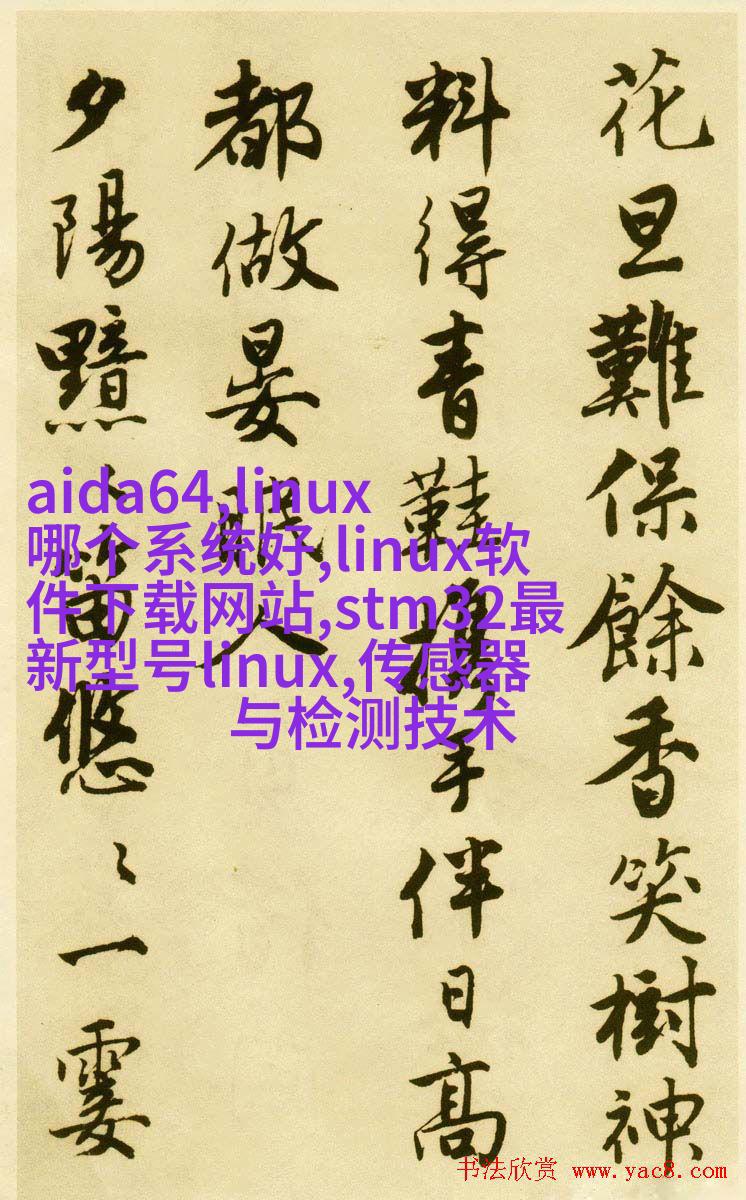 花旦難保餘香笑樹神
料得青鞋攜手伴日高
都做晏眠人
夕陽黯〻笛悠〻一霎
aida64,linux
哪个系统好,linux软
件下载网站,stm32最
新型号linux,传感器
与检测技术
书法欣赏 www.yac8.com